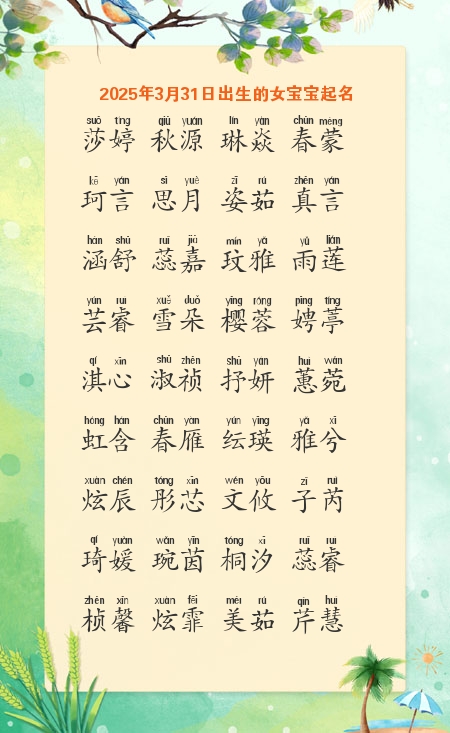 2025年3月31日出生的女宝宝起名
suō tíng qiū yuán lín yàn chūn méng
莎婷 秋源 琳焱 春蒙
kē yán sī yuè zī rú zhēn yán
珂言 思月 姿茹 真言
hán shū ruǐ jiā mín yǎ yǔ lián
涵舒 蕊嘉 玟雅 雨莲
yún ruì xuě duǒ yīng róng pīng tíng
芸睿 雪朵 樱蓉 娉葶
qí xīn shū zhēn shū yán huì wǎn
淇心 淑祯 抒妍 蕙菀
hóng hán chūn yàn yún yīng yǎ xī
虹含 春雁 纭瑛 雅兮
xuàn chén tóng xīn wén yōu zǐ ruì
炫辰 彤芯 文攸 子芮
qí yuàn wǎn yīn tóng xī ruǐ ruì
琦媛 琬茵 桐汐 蕊睿
zhēn xīn xuàn fēi měi rú qín huì
桢馨 炫霏 美茹 芹慧